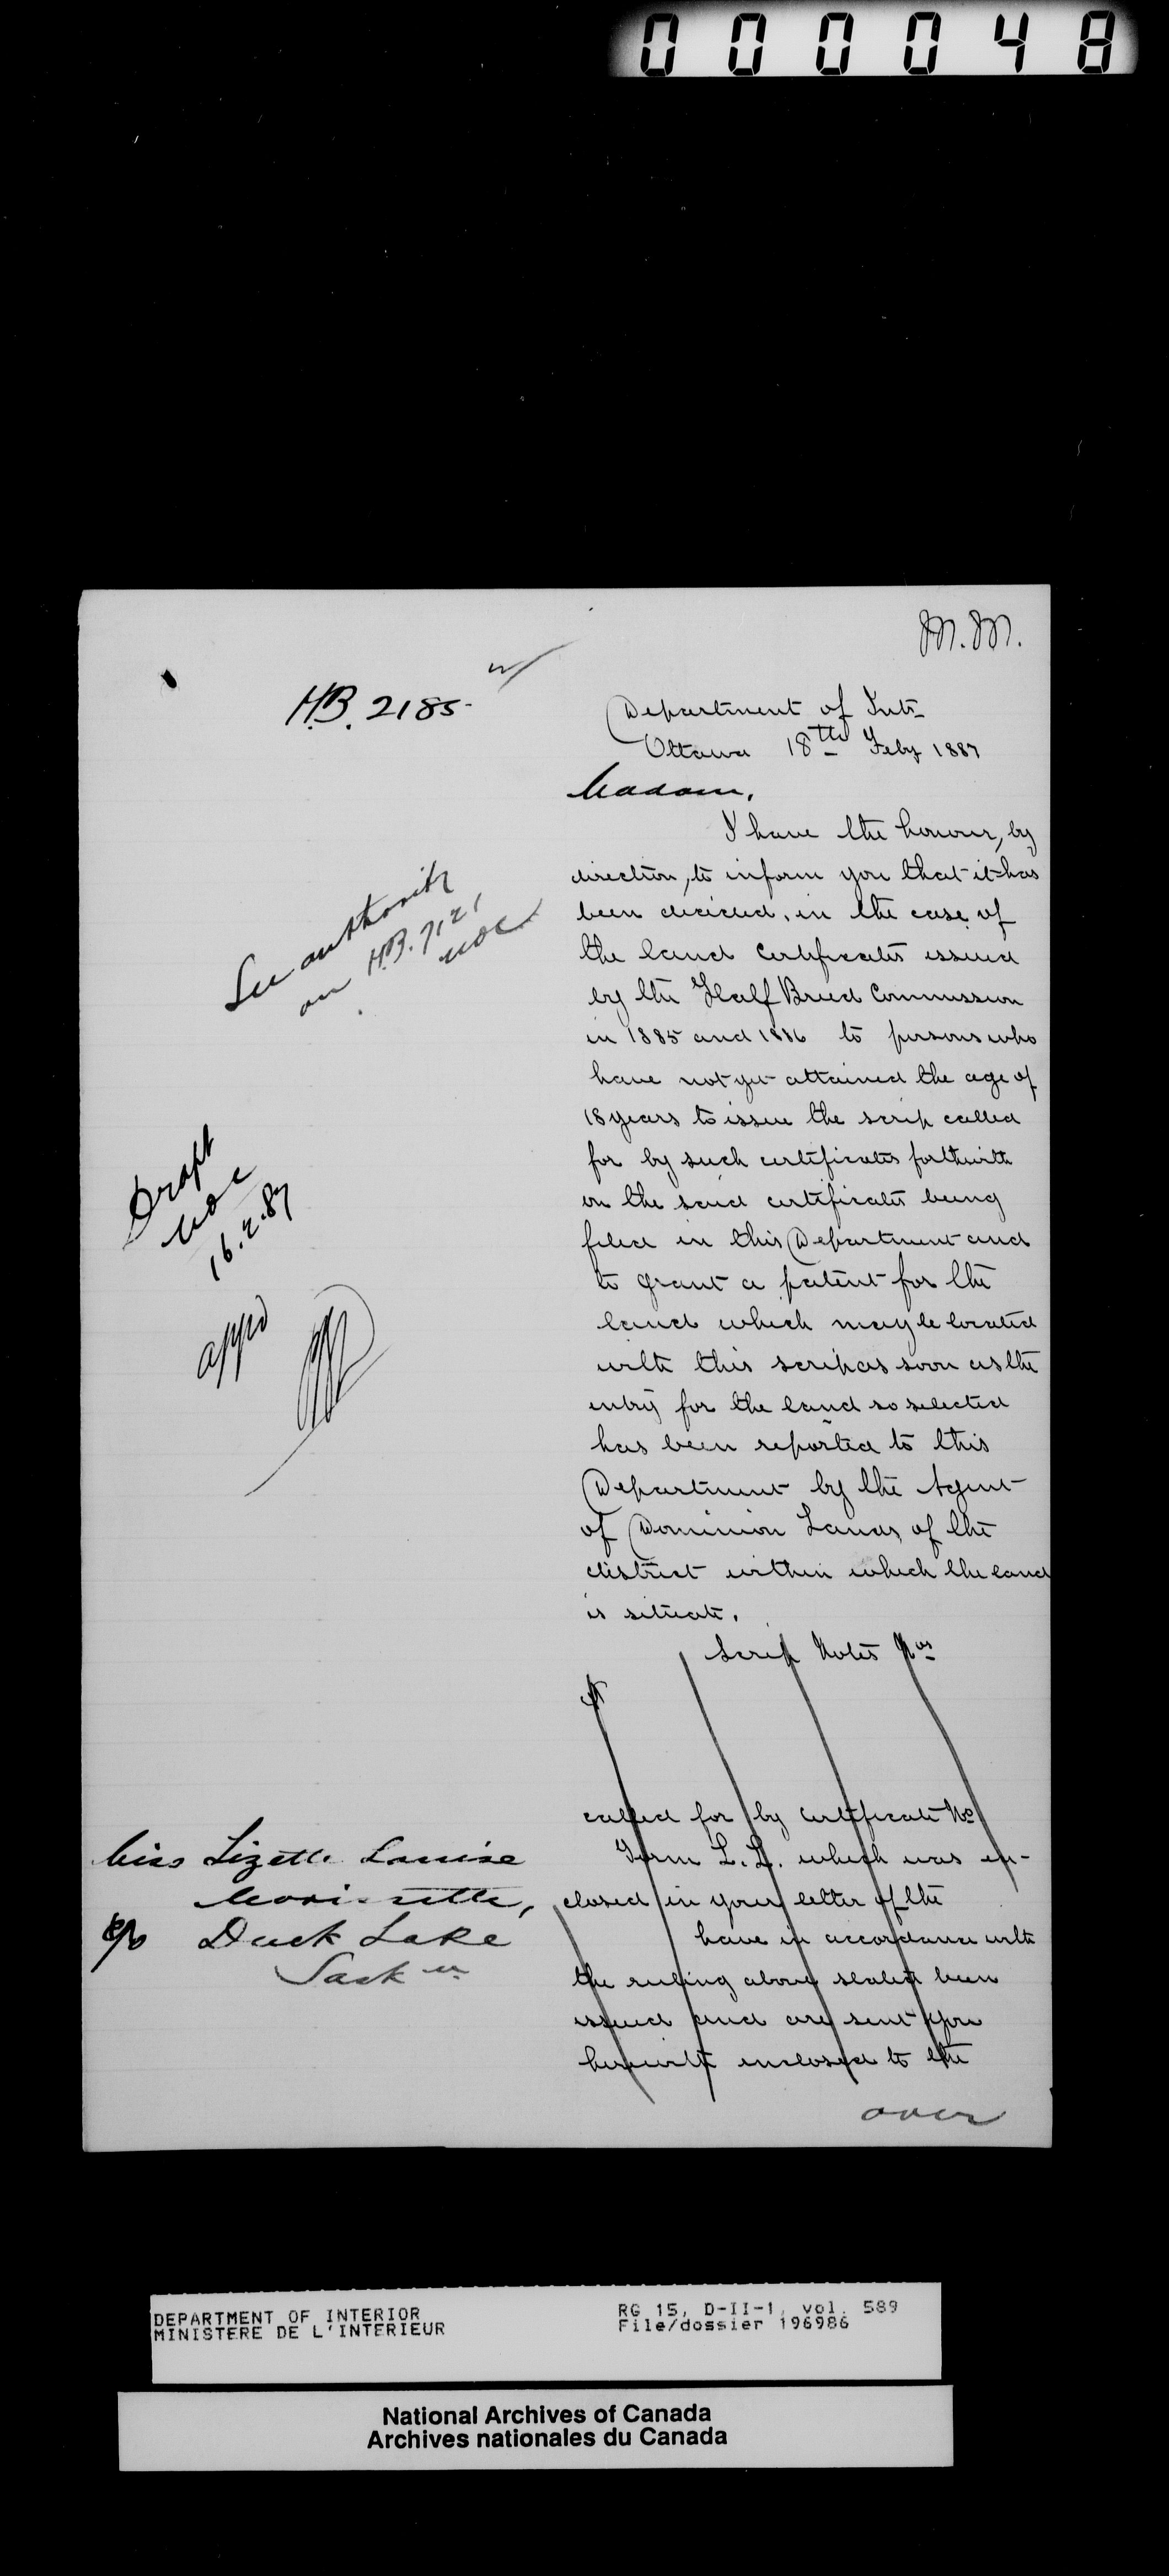 000048
M.M.
H.B. 2185
Department of Intr
Ottawa 18th Feby 1887
Madam,
I have the honour, by
direction, to inform you that it has
been decided, in the case of
the land certificates issued
by the Half Breed Commission
in 1885 and 1886 to persons who
have not yet attained the age of
18 years to issue the scrip called
for by such certificates forthwith
on the said certificates being
filed in this Department and
to grant a patent for the
land which may be located
with this scrip as soon as the
entry for the land so selected
has been reported to this
Department by the Agent
of Dominion Lands of the
district within which the land
is situate.
Scrip Notes Nos
called for by certificate No
Form L.L. which was en-
closed in your letter of the
have in accordance with
the ruling above stated been
issued and are sent you
herewith enclosed to the
over
See authority
on H.B. 7121
Draft
16.2.87
appd
Miss Lizette Louise
Morissette,
Duck Lake
Sask
DEPARTMENT OF INTERIOR
MINISTERE DE L'INTERIEUR
RG 15, D-II-1, vol. 589
File/dossier 196986
National Archives of Canada
Archives nationales du Canada